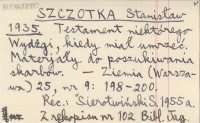 SZCZOTKA Stanisław
1935. Testament niektórego
Wydżgi, kiedy miał umrzeć.
Materjały do poszukiwania
skarbów. — Ziemia (Warsza-
wa) 25, nr 9: 198-200.
Rec.: Sierotwiński S. 1955a.
Z rękopisu nr 102 Bibl. Jag.